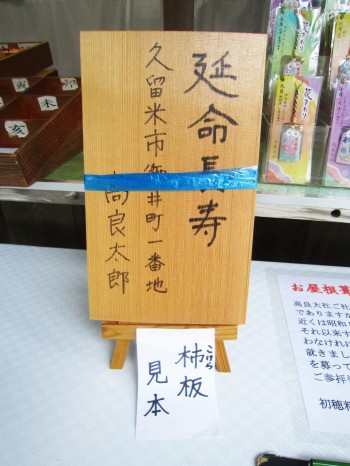 延命長寿
久留米市御井町一番地
高良太郎
こけら
柿板
見本
お屋根葺
高良大社ご社
でありますか
近くは昭和
それ以来す
わなければ
就きまし
を募って
ご参拝
初穂料
寅
未
亥